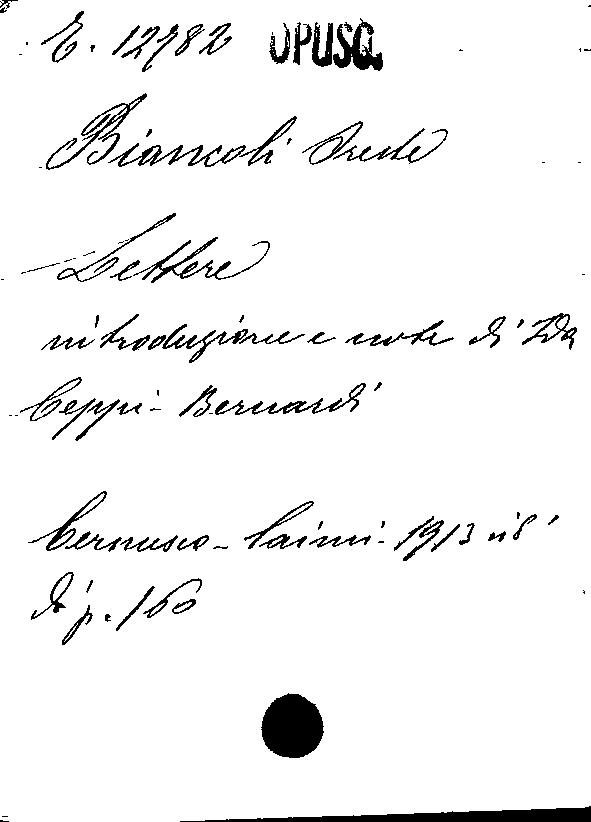 E. 12782 OPUSC.
Biancoli Oreste
Lettere
introduzione e note di Ida
Ceppi-Bernardi
Cernusco - Caimi - 1913 in 8°
di p. 160